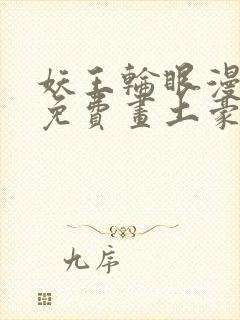 妖王輪眼漫
免費畫土豪
九帝